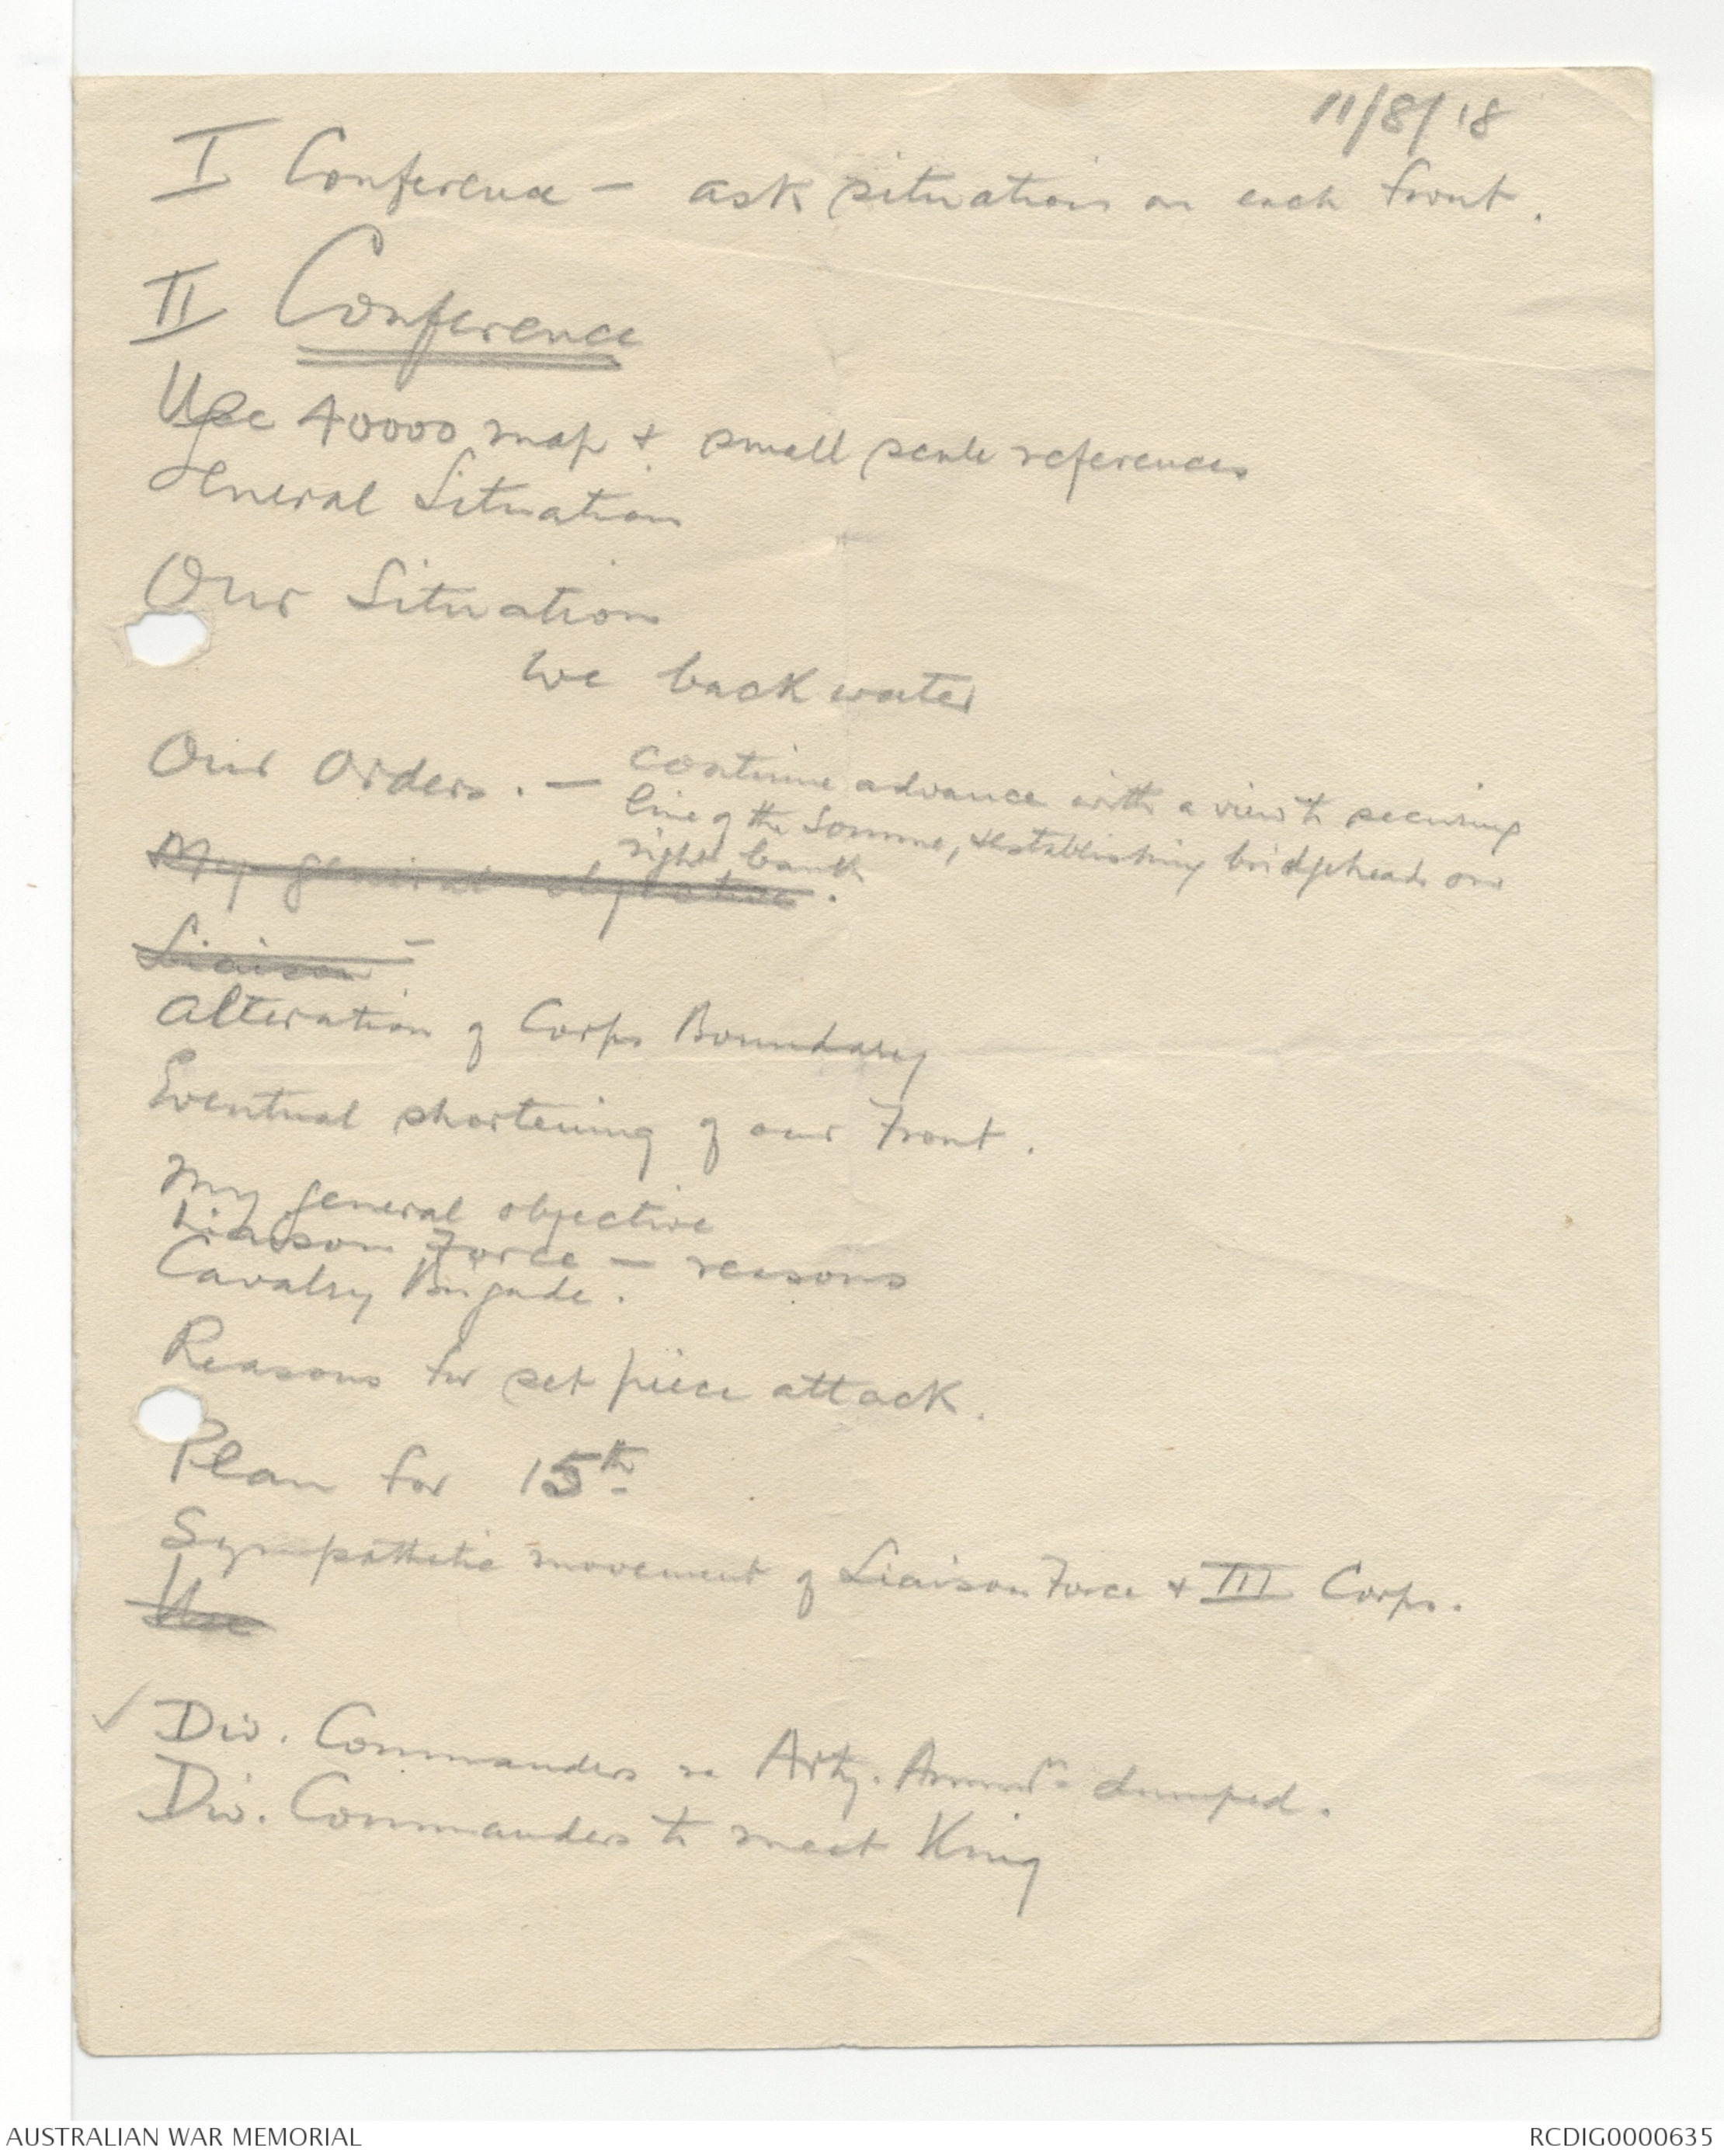 11/8/18
I Conference - ask situation on each front.
II Conference
Use 40000 map & small scale references
General Situation
Our Situation
We back water
Our Orders. - continue advance with a view to securing
line of the Somme, & establishing bridgeheads on
right bank
My general objective.
Liaison -
Alteration of Corps Boundary
Eventual shortening of our Front.
My general objective
Liaison Force - reasons
Cavalry Brigade.
Reasons for set piece attack.
Plan for 15th
Sympathetic movement of Liaison Force & III Corps.
Use
✓ Div. Commanders re Arty. Ammn dumped.
Div. Commanders to meet King
AUSTRALIAN WAR MEMORIAL
RCDIG0000635